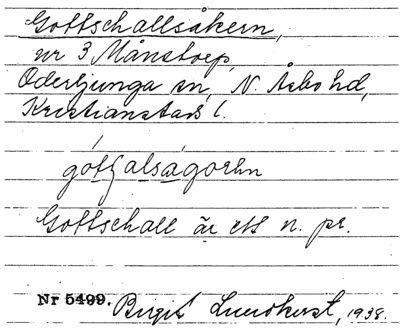 Gottschallsåkern,
nr 3 Månstorp,
Oderljunga sn, N. Åsbo hd,
Kristianstads l.
Gottschall är ett n. pr.
Nr 5499. Birgit Lundkvist, 1938.